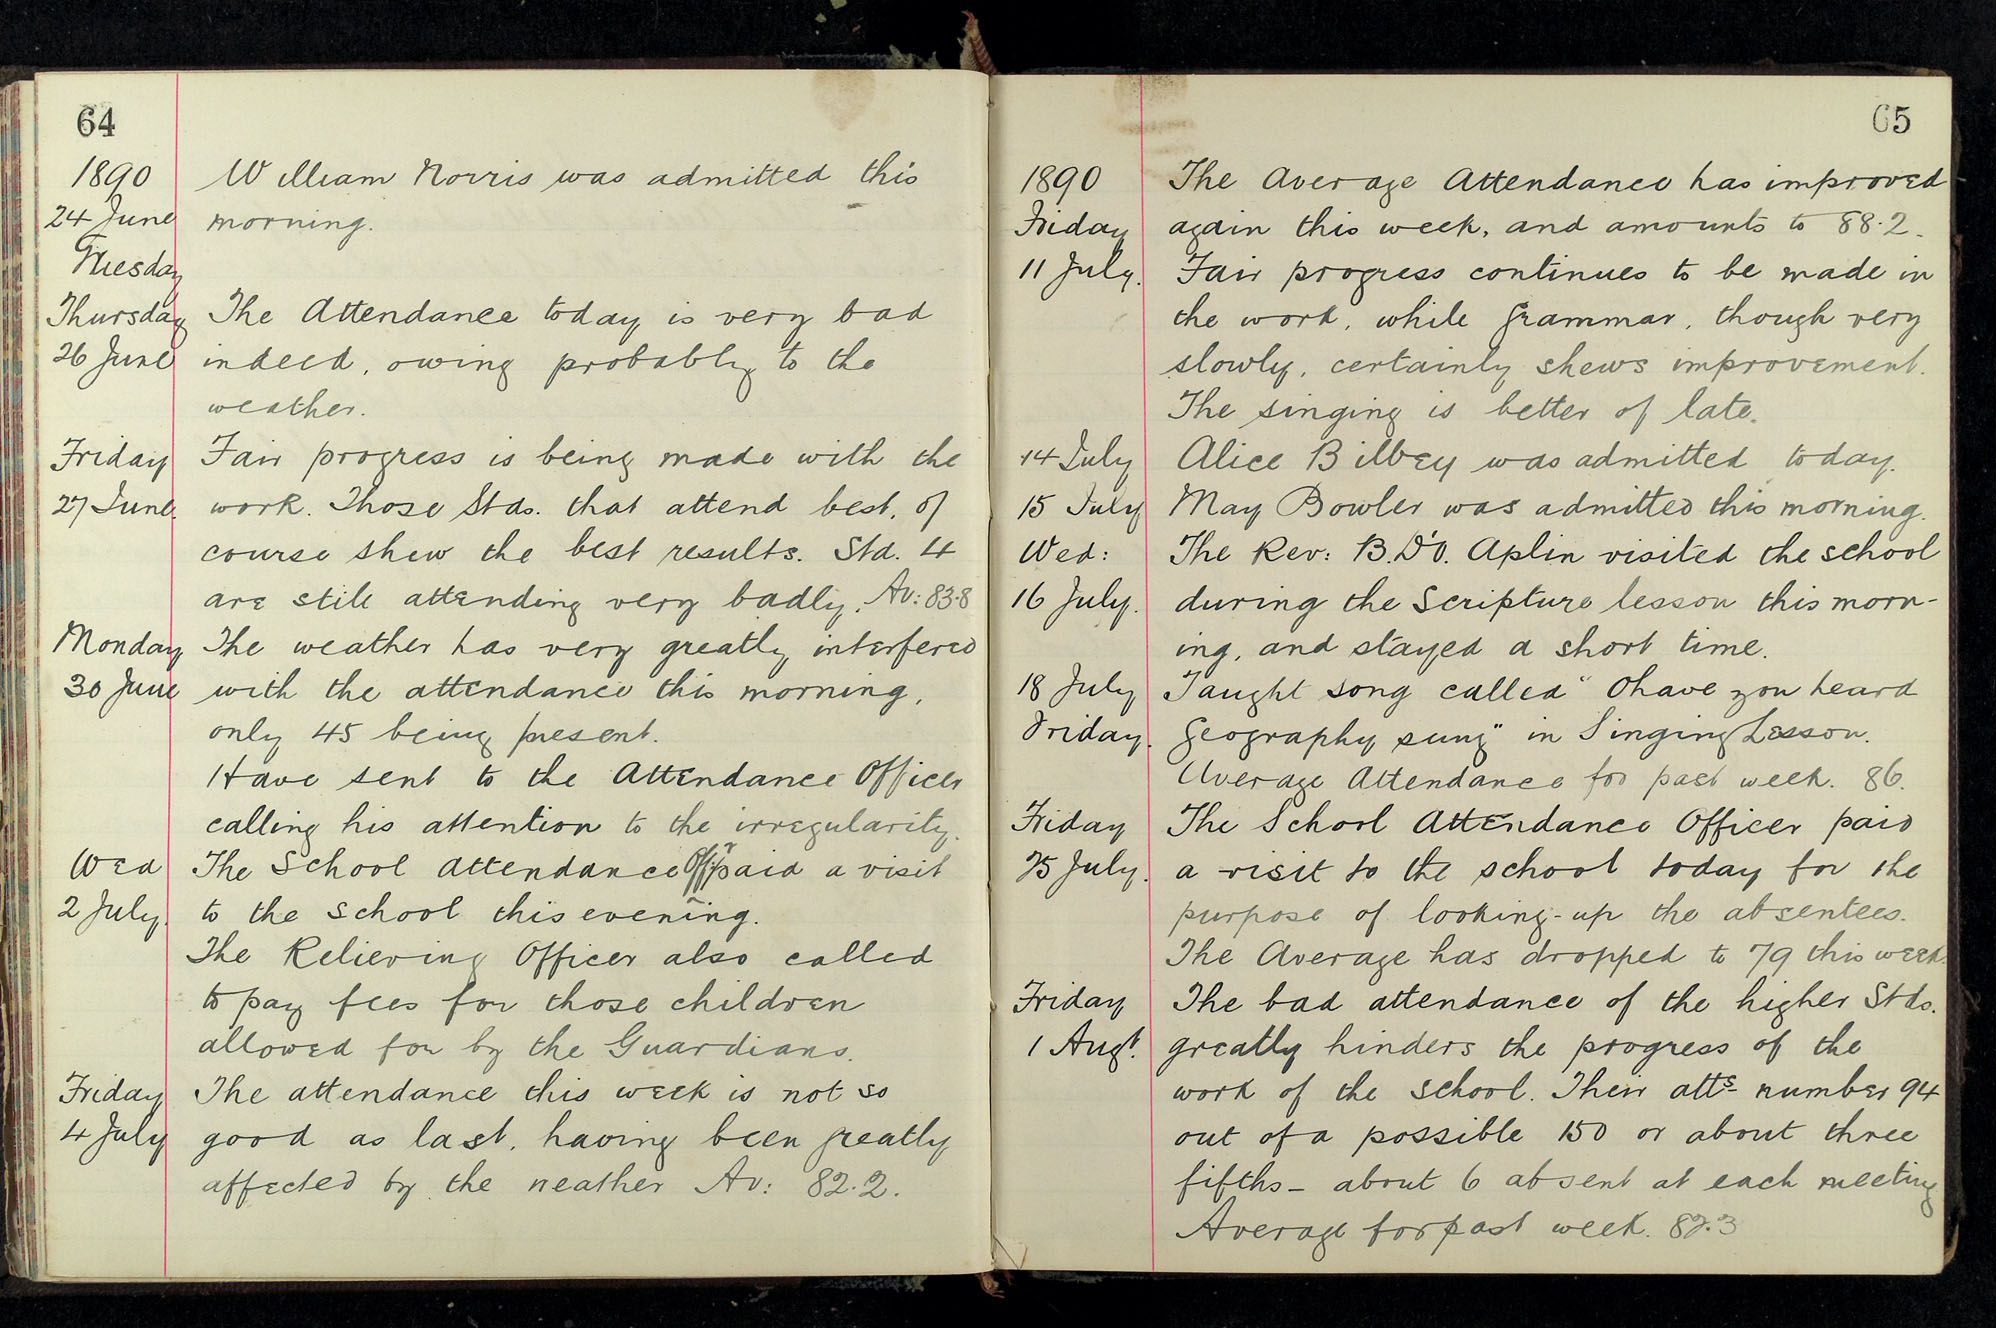 64
1890 William Norris was admitted this
24 June morning.
Tuesday
Thursday The Attendance today is very bad
26 June indeed, owing probably to the
weather.
Friday Fair progress is being made with the
27 June. work. Those Stds. that attend best, of
course shew the best results. Std. 4
are still attending very badly. Av: 83.8
Monday The weather has very greatly interfered
30 June with the attendance this morning,
only 45 being present.
Have sent to the Attendance Officer
calling his attention to the irregularity.
Wed The School Attendance Offr paid a visit
2 July. to the school this evening.
The Relieving Officer also called
to pay fees for those children
allowed for by the Guardians.
Friday The attendance this week is not so
4 July good as last, having been greatly
affected by the weather Av: 82.2.
65
1890 The Average Attendance has improved
Friday again this week, and amounts to 88.2.
11 July. Fair progress continues to be made in
the work, while Grammar, though very
slowly, certainly shews improvement.
The singing is better of late.
14 July Alice Bilbey was admitted today.
15 July May Bowler was admitted this morning.
Wed: The Rev: B.D'O. Aplin visited the school
16 July. during the Scripture lesson this morn-
ing, and stayed a short time.
18 July Taught song called "O have you heard
Friday. Geography sung" in Singing Lesson.
Average Attendance for past week. 86.
Friday The School Attendance Officer paid
25 July. a visit to the school today for the
purpose of looking-up the absentees.
The Average has dropped to 79 this week.
Friday The bad attendance of the higher Stds.
1 Augt. greatly hinders the progress of the
work of the school. Their atts- number 94
out of a possible 150 or about three
fifths - about 6 absent at each meeting
Average for past week. 82.3